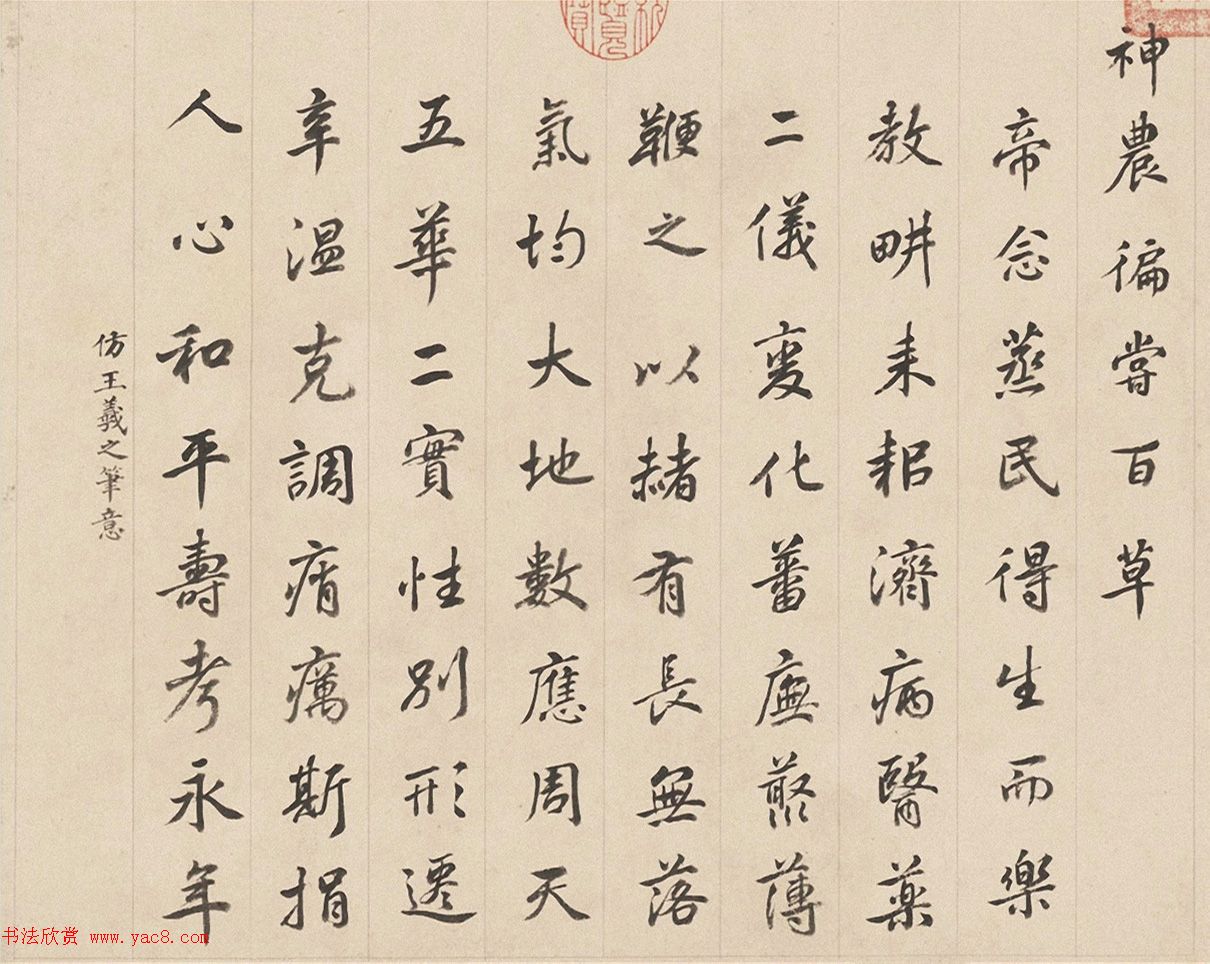 神農徧嘗百草
帝念蒸民得生而樂
教畊耒耜濟病醫藥
二儀变化蕃廡藂薄
鞭之以赭有長無落
氣均大地數應周天
五華二實性別形遷
辛温克調痟癘斯捐
人心和平壽考永年
仿王羲之筆意
书法欣赏 www.yac8.com